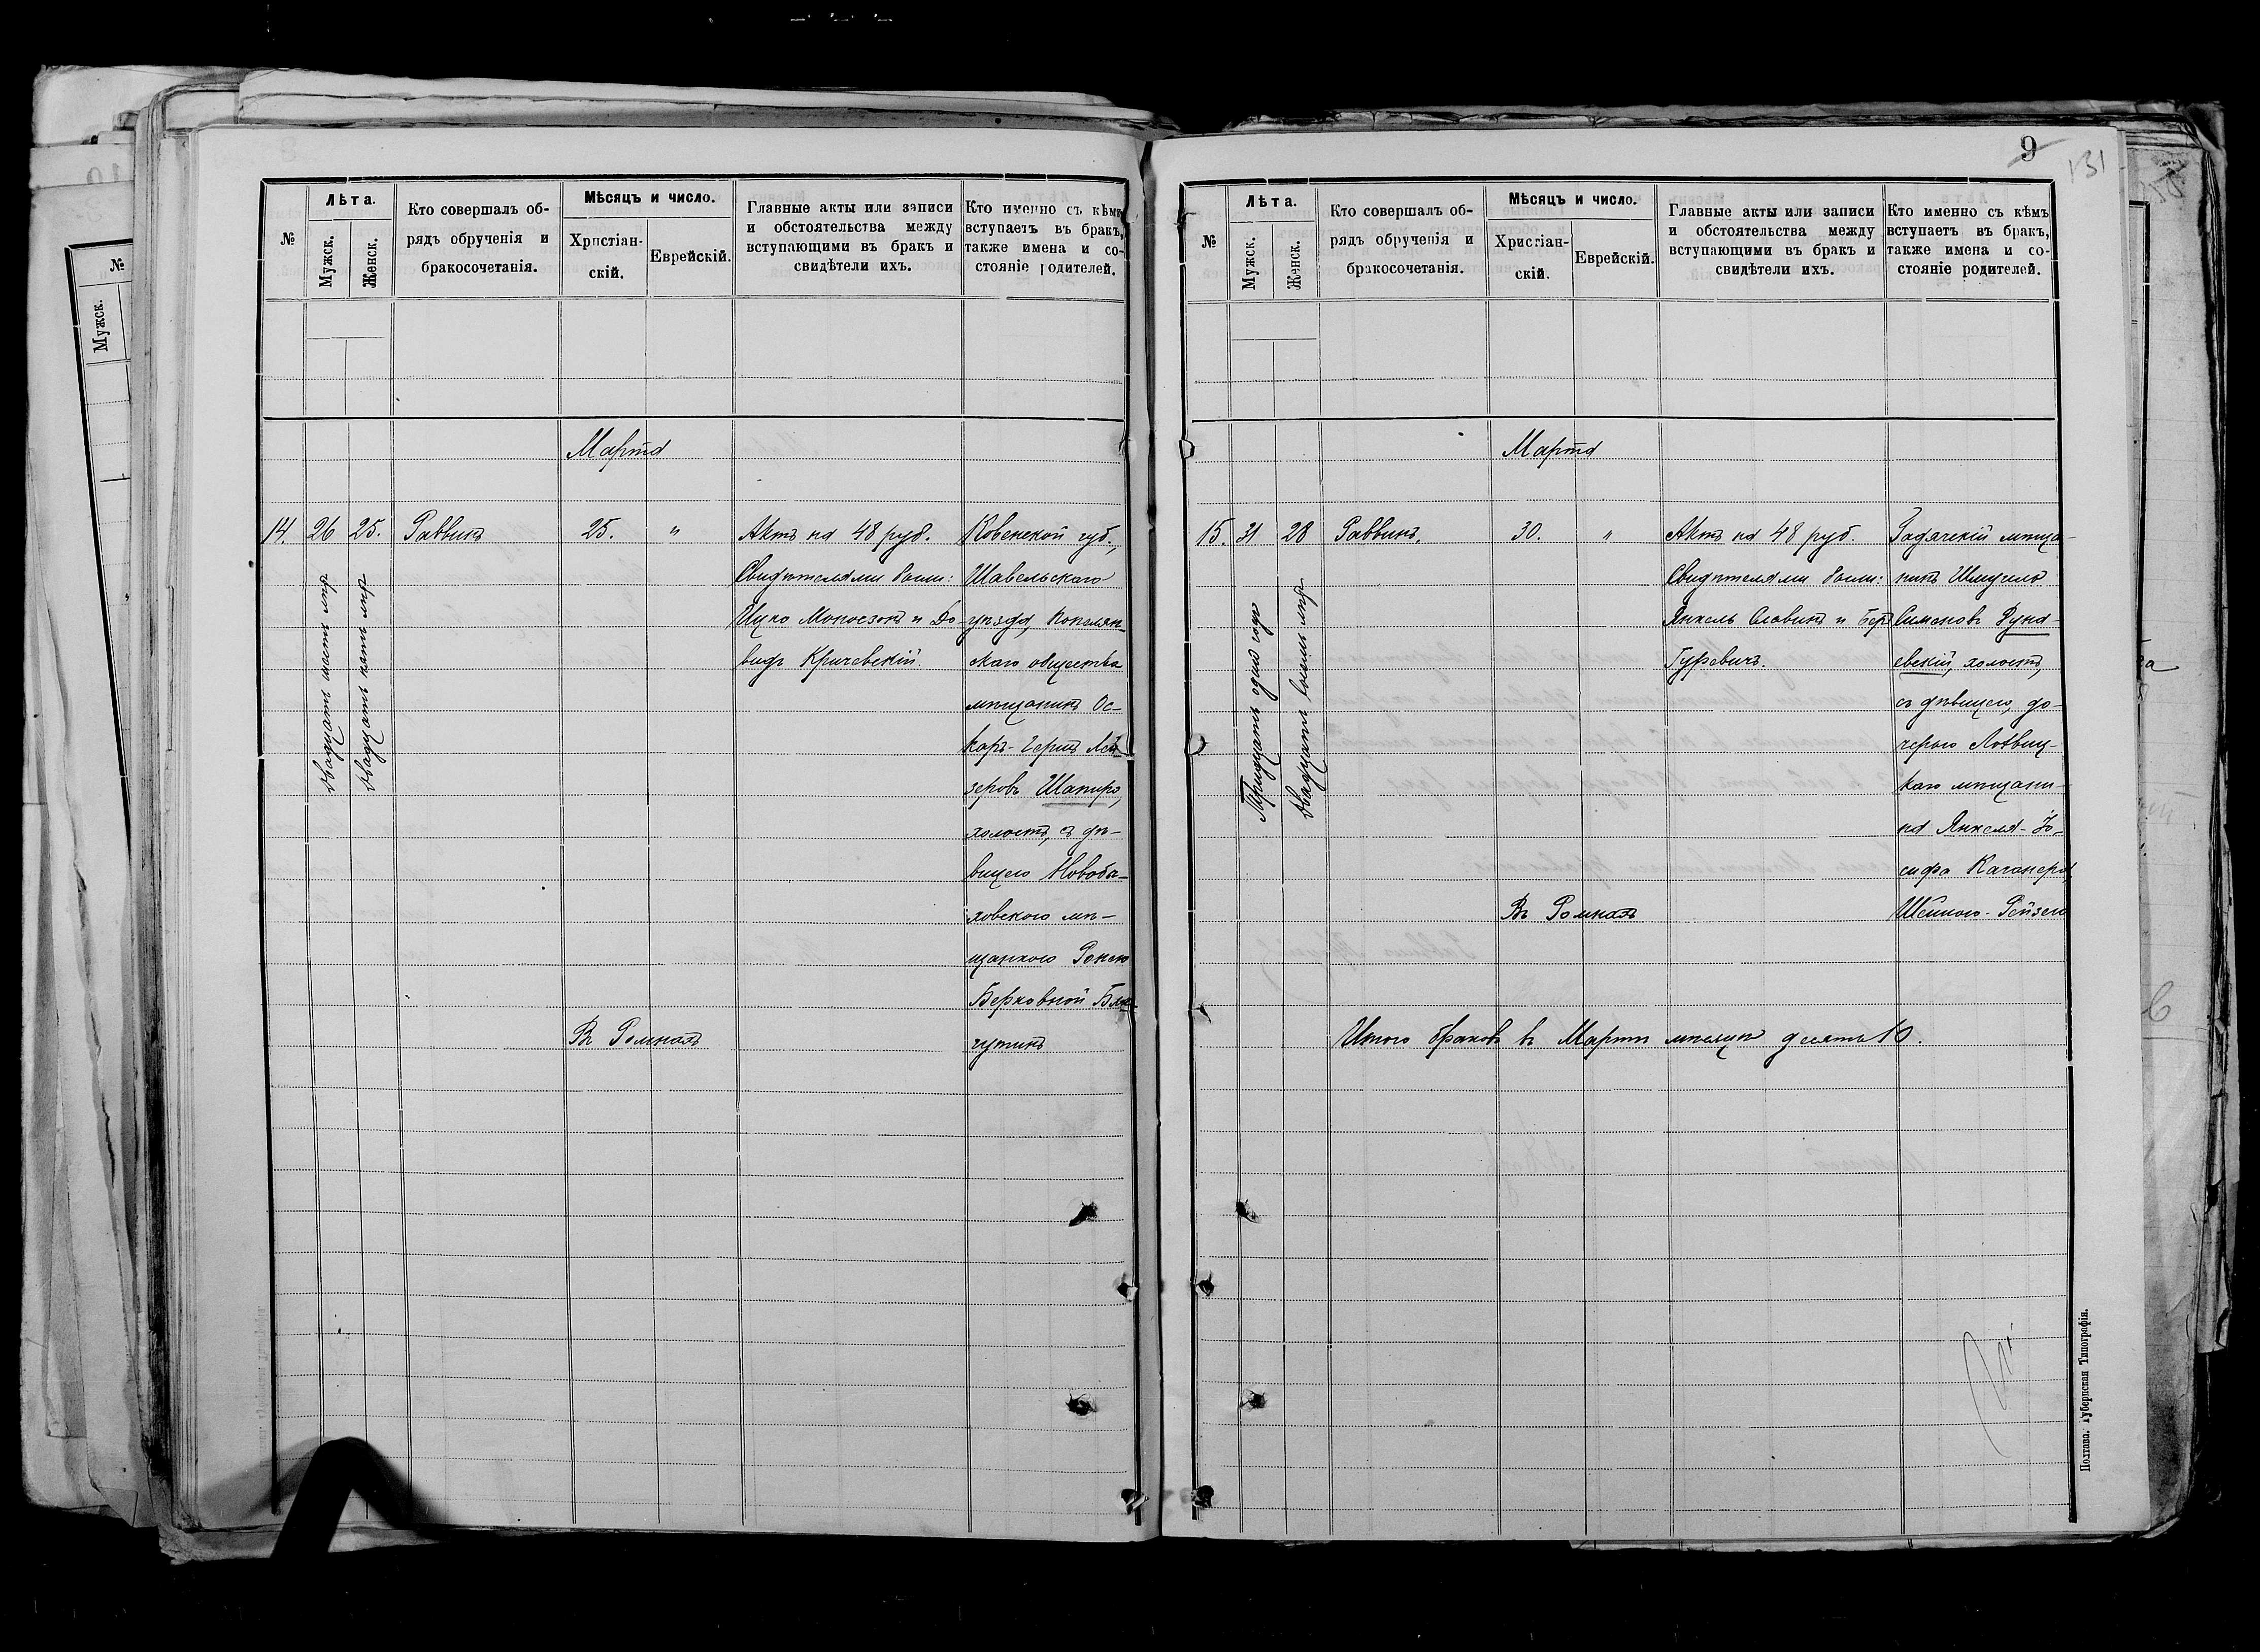 №
Лѣта.
Мужск.
Женск.
Кто совершалъ об-
рядъ обрученія и
бракосочетанія.
Мѣсяцъ и число.
Христіан-
скій.
Еврейскій.
Главные акты или записи
и обстоятельства между
вступающими въ бракъ и
свидѣтели ихъ.
Кто именно съ кѣмъ
вступаетъ въ бракъ,
также имена и со-
стояніе родителей.
Марта
14. 26 25. Раввинъ 25. "
двадцать шесть лѣтъ
двадцать пять лѣтъ
Актъ на 48 руб.
Свидѣтелями были:
Ицко Моносзонъ и До-
видъ Кричевскій.
Ковенской губ.,
Шавельскаго
уѣзда,
скаго общества
мѣщанинъ Ос-
каръ-Герцъ Лей-
зеровъ Шапиро,
холостъ, съ дѣ-
вицею Новоба-
ховскою мѣ-
щанкою Ронею
Берковной
Въ Ромнахъ
9
131
№
Лѣта.
Мужск.
Женск.
Кто совершалъ об-
рядъ обрученія и
бракосочетанія.
Мѣсяцъ и число.
Христіан-
скій.
Еврейскій.
Главные акты или записи
и обстоятельства между
вступающими въ бракъ и
свидѣтели ихъ.
Кто именно съ кѣмъ
вступаетъ въ бракъ,
также имена и со-
стояніе родителей.
Марта
15. 31 28 Раввинъ. 30. "
Тридцать одинъ годъ
двадцать восемь лѣтъ
Актъ на 48 руб.
Свидѣтелями были:
Янкель Славинъ и Беръ
Гуревичъ.
Гадячскій мѣща-
нинъ Шмуель
Симоновъ Дуна-
евскій, холостъ,
съ дѣвицею, до-
черью Лохвиц-
каго мѣщани-
на Янкеля-Іо-
сифа Каганера,
Шейною-Рейзею
Въ Ромнахъ
Итого браковъ въ Мартѣ мѣсяцѣ десять 10.
Полтава. Губернская Типографія.
№
Мужск.